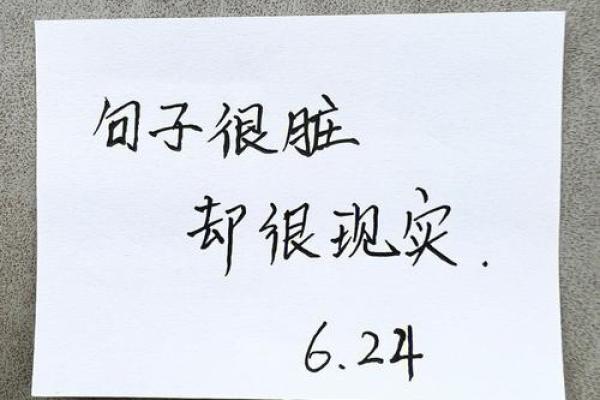 句子很脏
却很现实.
6.24